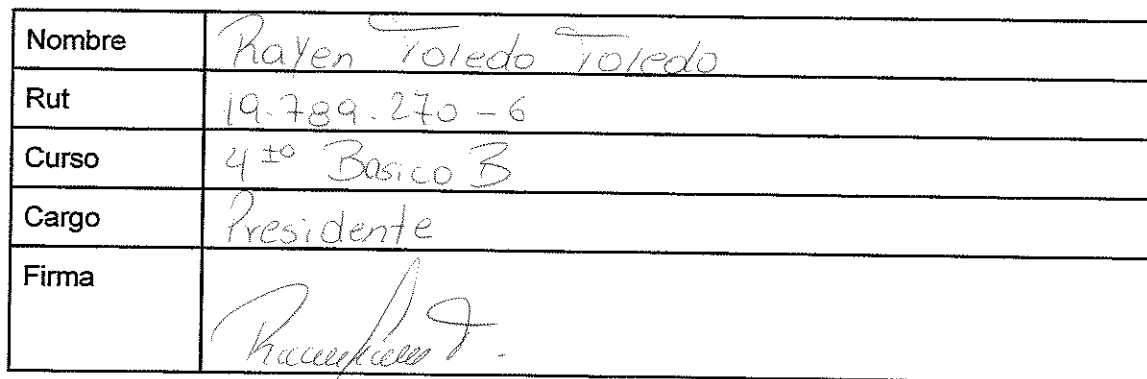 Nombre Rayen Toledo Toledo
Rut 19.789.270-6
Curso 4to Basico B
Cargo Presidente
Firma